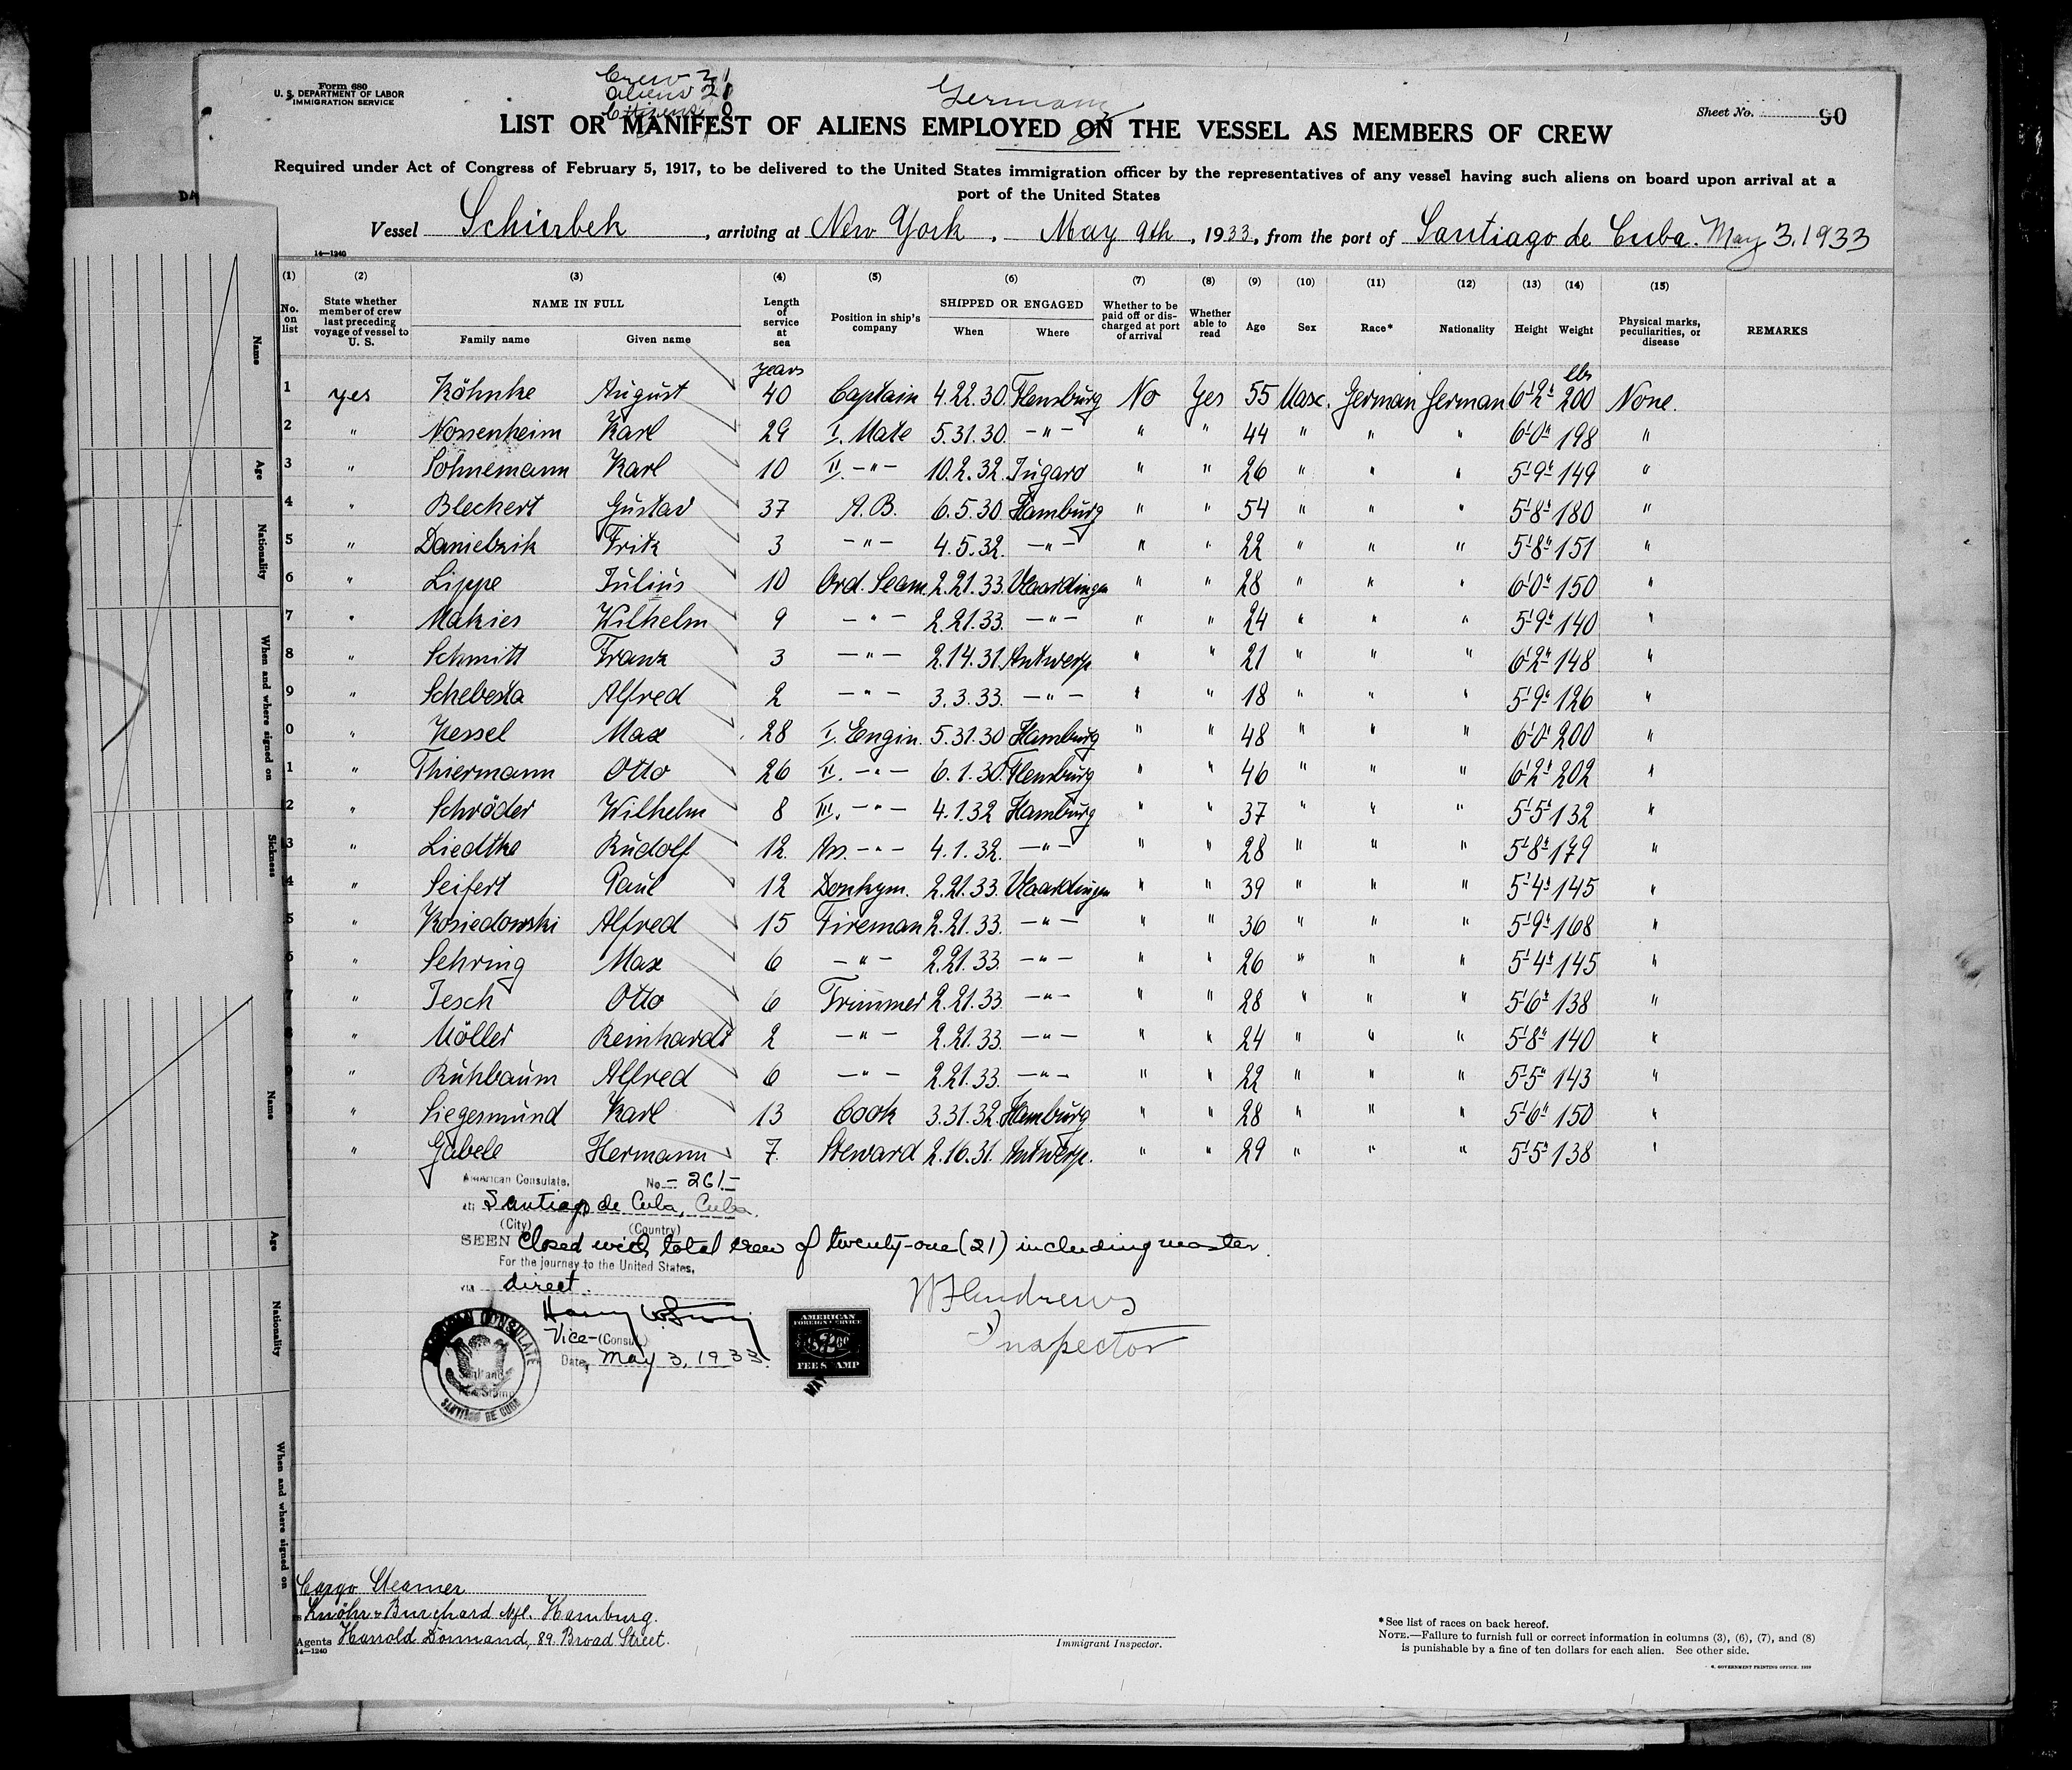 Form 680
U. S. DEPARTMENT OF LABOR
IMMIGRATION SERVICE
Crew 21
Aliens 21
Citizens 0
German
Sheet No. 90
LIST OR MANIFEST OF ALIENS EMPLOYED ON THE VESSEL AS MEMBERS OF CREW
Required under Act of Congress of February 5, 1917, to be delivered to the United States immigration officer by the representatives of any vessel having such aliens on board upon arrival at a
port of the United States
Vessel Schürbek, arriving at New York, May 9th, 1933, from the port of Santiago de Cuba. May 3. 1933
14—1240
(1) (2) (3) (4) (5) (6) (7) (8) (9) (10) (11) (12) (13) (14) (15)
No. on list State whether member of crew last preceding voyage of vessel to U. S. NAME IN FULL Family name Given name Length of service at sea Position in ship's company SHIPPED OR ENGAGED When Where Whether to be paid off or discharged at port of arrival Whether able to read Age Sex Race* Nationality Height Weight Physical marks, peculiarities, or disease REMARKS
years lbs
1 yes Köhnke August 40 Captain 4.22.30. Flensburg No Yes 55 Masc. German German 6'2" 200 None.
2 " Nössenheim Karl 29 I. Mate 5.31.30. —"— " " 44 " " " 6'0" 198 "
3 " Söhnemann Karl 10 II. —"— 10.2.32. Jugaro " " 26 " " " 5'9" 149 "
4 " Blechert Gustav 37 A.B. 6.5.30. Hamburg " " 54 " " " 5'8" 180 "
5 " Danielzik Fritz 3 —"— 4.5.32. —"— " " 22 " " " 5'8" 151 "
6 " Lippe Julius 10 Ord. Seam. 2.21.33. Vlaardingen " " 28 " " " 6'0" 150 "
7 " Makies Wilhelm 9 —"— 2.21.33. —"— " " 24 " " " 5'9" 140 "
8 " Schmitt Franz 3 —"— 2.14.31. Antwerp. " " 21 " " " 6'2" 148 "
9 " Schebesta Alfred 2 —"— 3.3.33. —"— " " 18 " " " 5'9" 126 "
0 " Kessel Max 28 I. Engin. 5.31.30 Hamburg " " 48 " " " 6'0" 200 "
1 " Thiermann Otto 26 II. —"— 6.1.30. Flensburg " " 46 " " " 6'2" 202 "
2 " Schröder Wilhelm 8 III. —"— 4.1.32 Hamburg " " 37 " " " 5'5" 132 "
3 " Liedtke Rudolf 12. Ass. —"— 4.1.32. —"— " " 28 " " " 5'8" 179 "
4 " Seifert Paul 12 Donkym. 2.21.33. Vlaardingen " " 39 " " " 5'4" 145 "
5 " Kosiedowski Alfred 15 Fireman 2.21.33. —"— " " 36 " " " 5'9" 168 "
6 " Sehring Max 6 —"— 2.21.33. —"— " " 26 " " " 5'4" 145 "
7 " Jesch Otto 6 Trimmer 2.21.33. —"— " " 28 " " " 5'6" 138 "
8 " Möller Reinhardt 2 —"— 2.21.33. —"— " " 24 " " " 5'8" 140 "
" Rühbaum Alfred 6 —"— 2.21.33. —"— " " 22 " " " 5'5" 143 "
" Siegesmund Karl 13 Cook 3.31.32. Hamburg " " 28 " " " 5'6" 150 "
" Gäbele Hermann 7. Steward 2.16.31. Antwerp. " " 29 " " " 5'5" 138 "
American Consulate, No. - 261. -
at Santiago de Cuba, Cuba.
(City) (Country)
SEEN Closed with total crew of twenty-one (21) including master.
For the journey to the United States,
via direct.
Harry W.
Vice-(Consul)
Date, May 3, 1933.
AMERICAN CONSULATE
Seal and
Fee Stamp
SANTIAGO DE CUBA
AMERICAN
FOREIGN SERVICE
$2.00
FEE STAMP
MAY
W F Andrews
Inspector
Cargo Steamer
Knöhr & Burchard Nfl. Hamburg.
Agents Harrold Dormand, 89. Broad Street.
14—1240
Immigrant Inspector.
*See list of races on back hereof.
NOTE.—Failure to furnish full or correct information in columns (3), (6), (7), and (8)
is punishable by a fine of ten dollars for each alien. See other side.
GOVERNMENT PRINTING OFFICE
Name
Age
Nationality
When and where signed on
Sickness
Name
Age
Nationality
When and where signed on